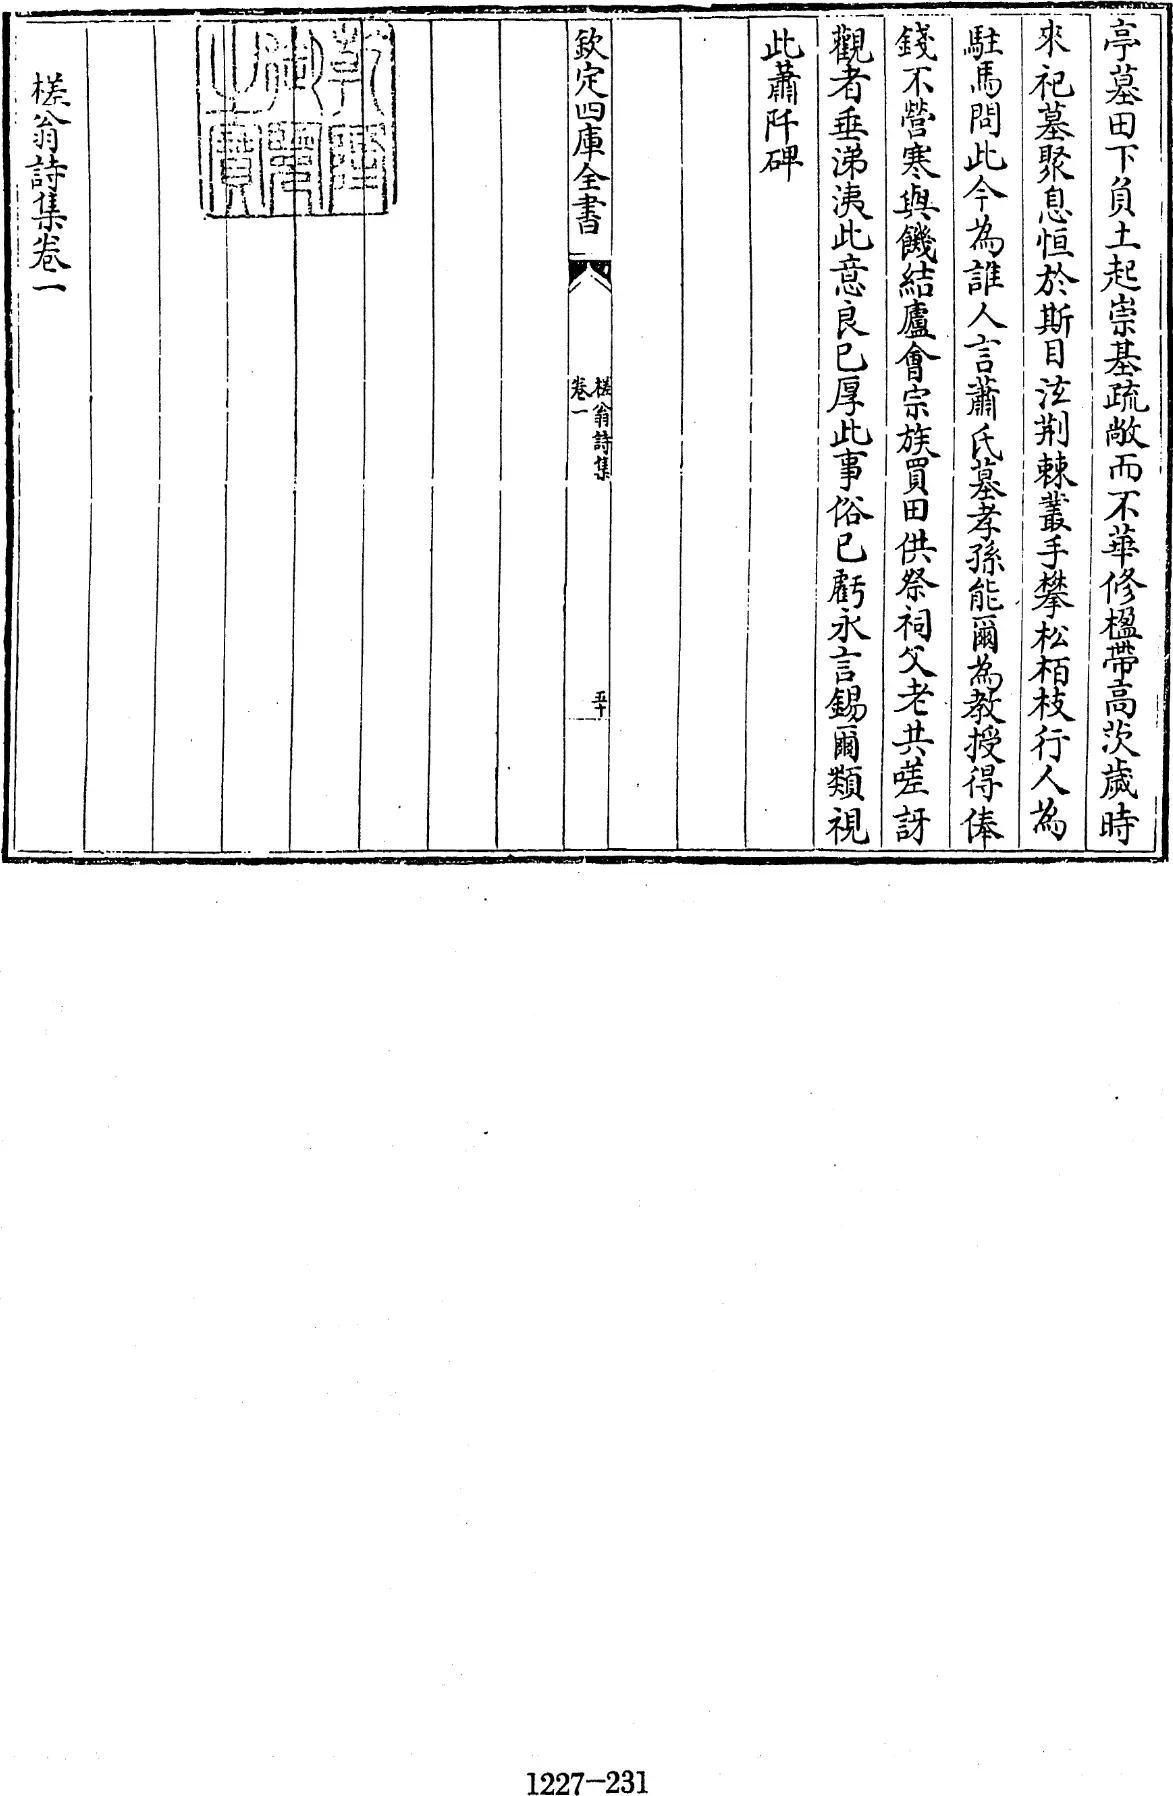 亭墓田下負土起崇基疏敞而不華修楹帶高茨歲時
來祀墓聚息恒於斯目泫荆棘叢手攀松栢枝行人為
駐馬問此今為誰人言蕭氏墓孝孫能爾為教授得俸
錢不營寒與饑結廬會宗族買田供祭祠父老共嗟訝
觀者垂涕洟此意良已厚此事俗已虧永言錫爾類視
此蕭阡碑
欽定四庫全書
槎翁詩集
卷一
五十
乾隆御覽之寶
槎翁詩集卷一
1227-231